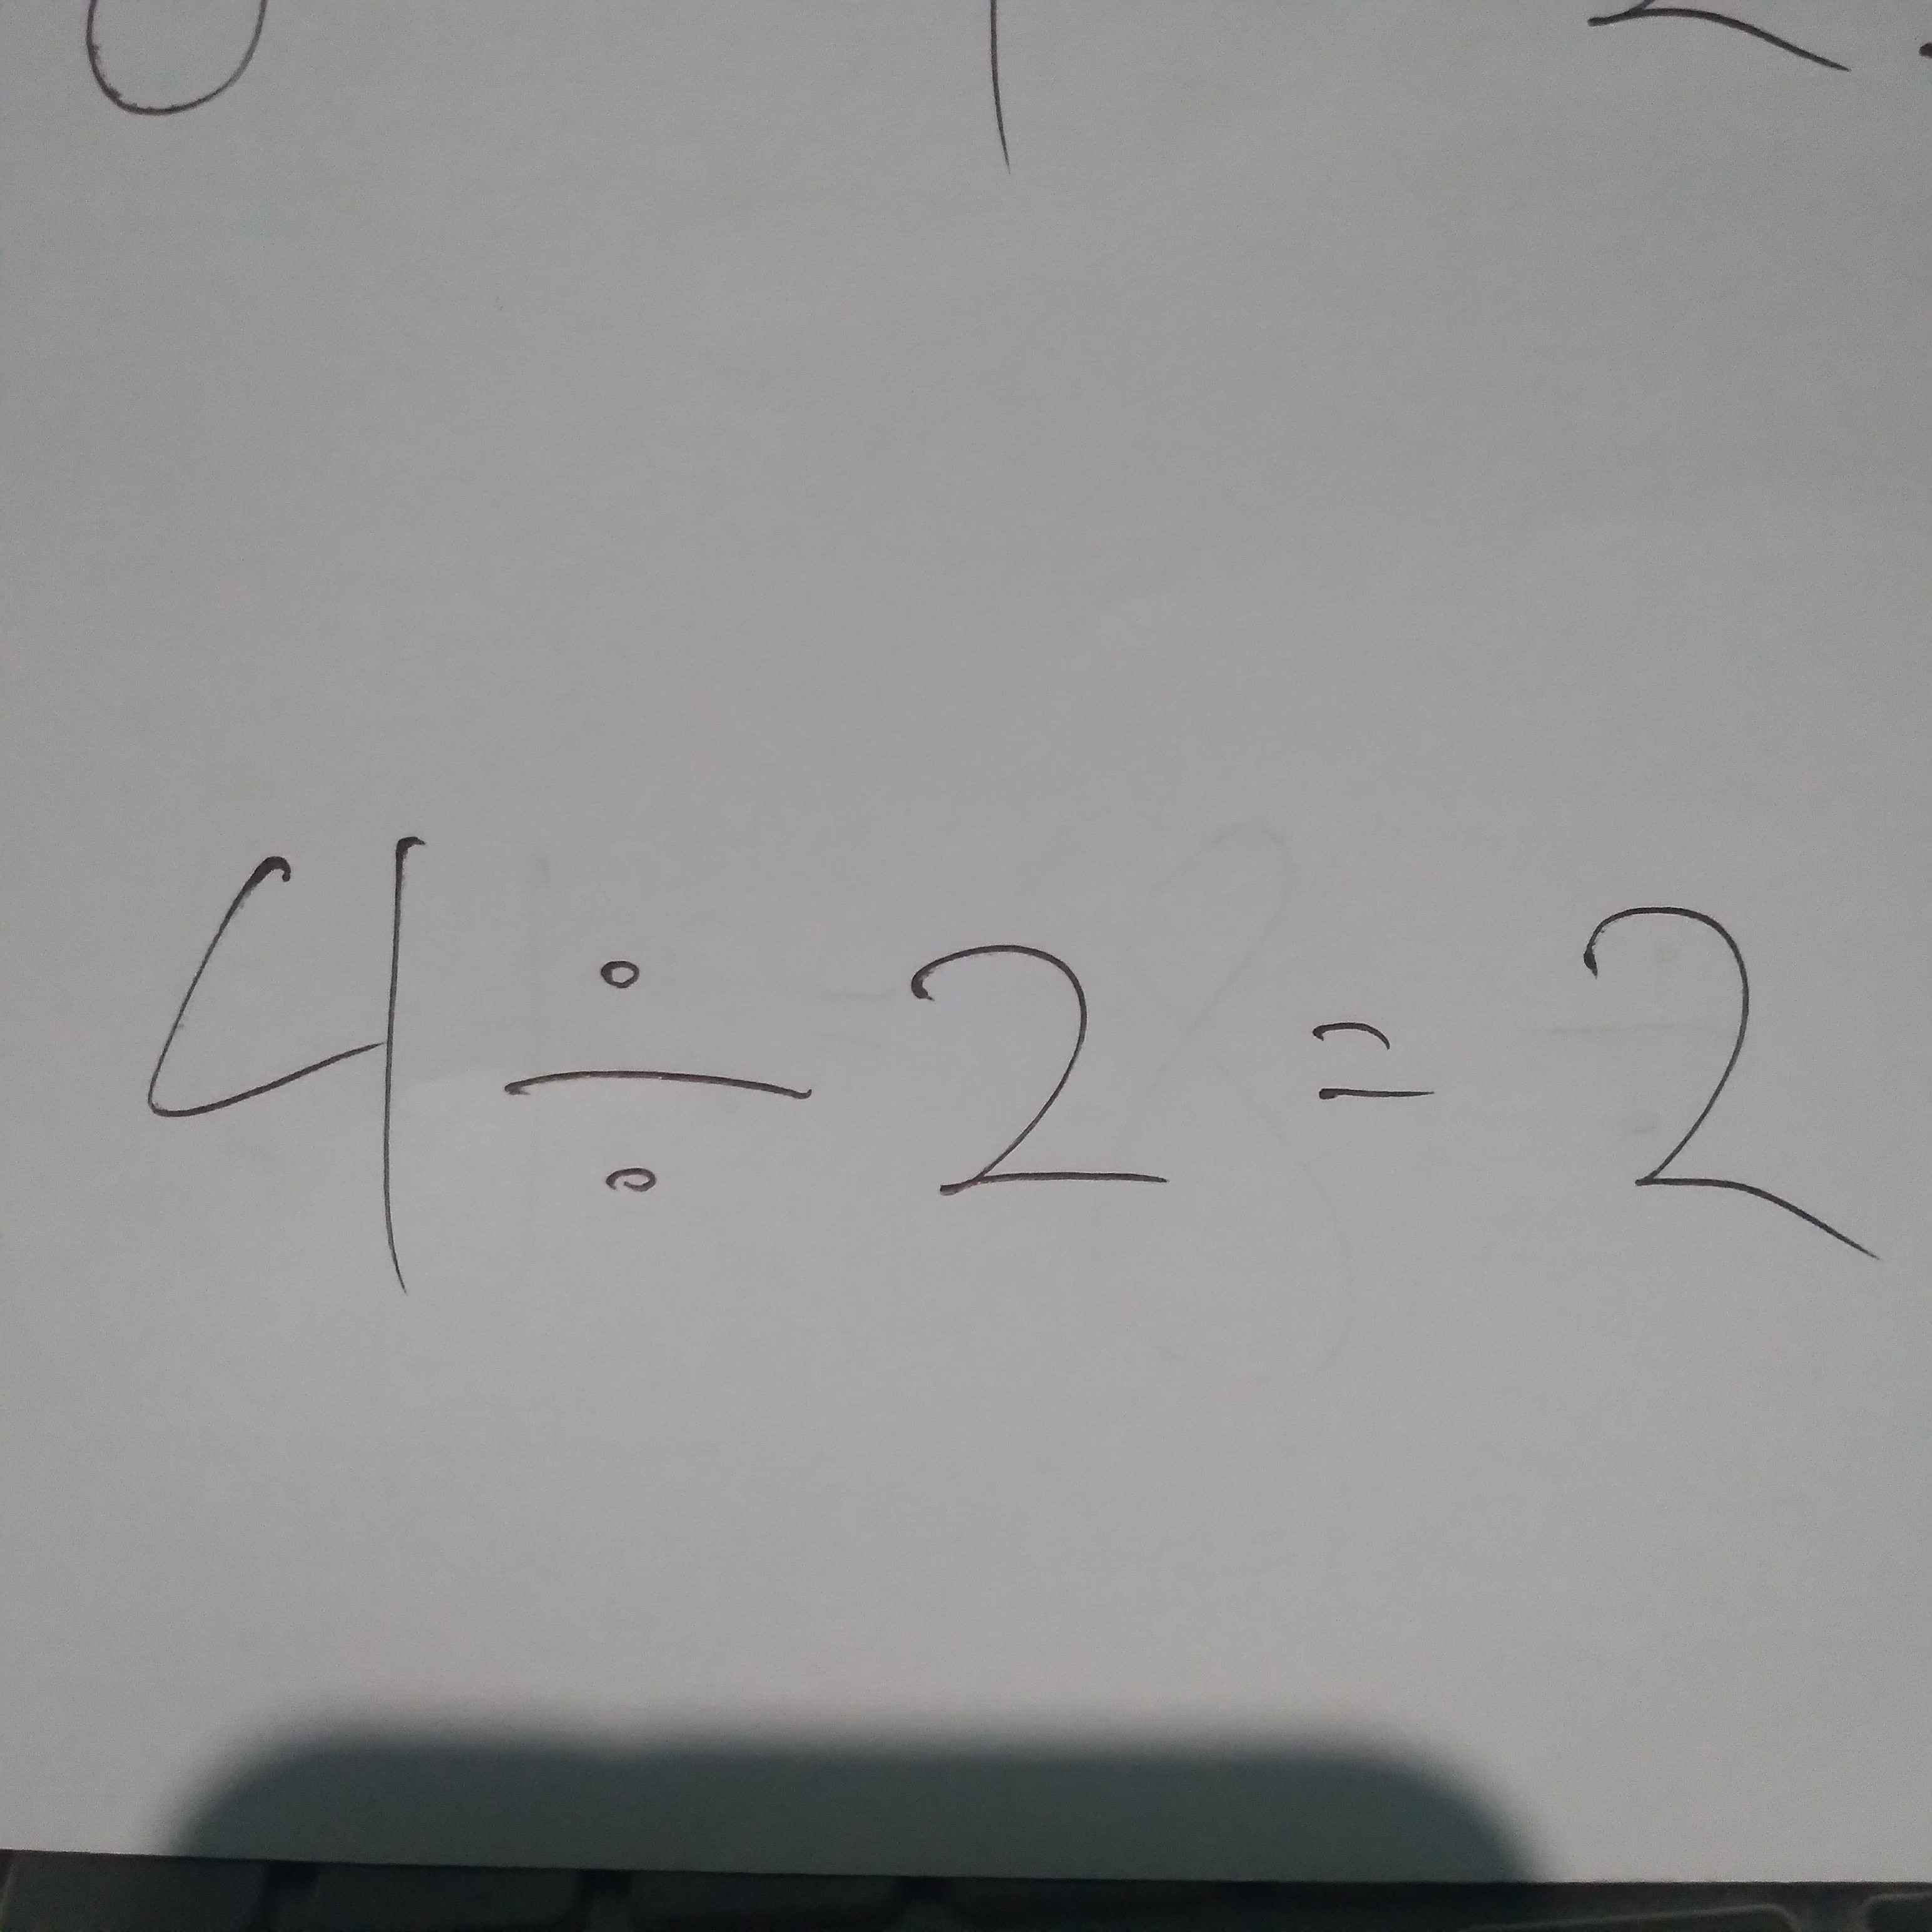 4 ÷ 2 = 2